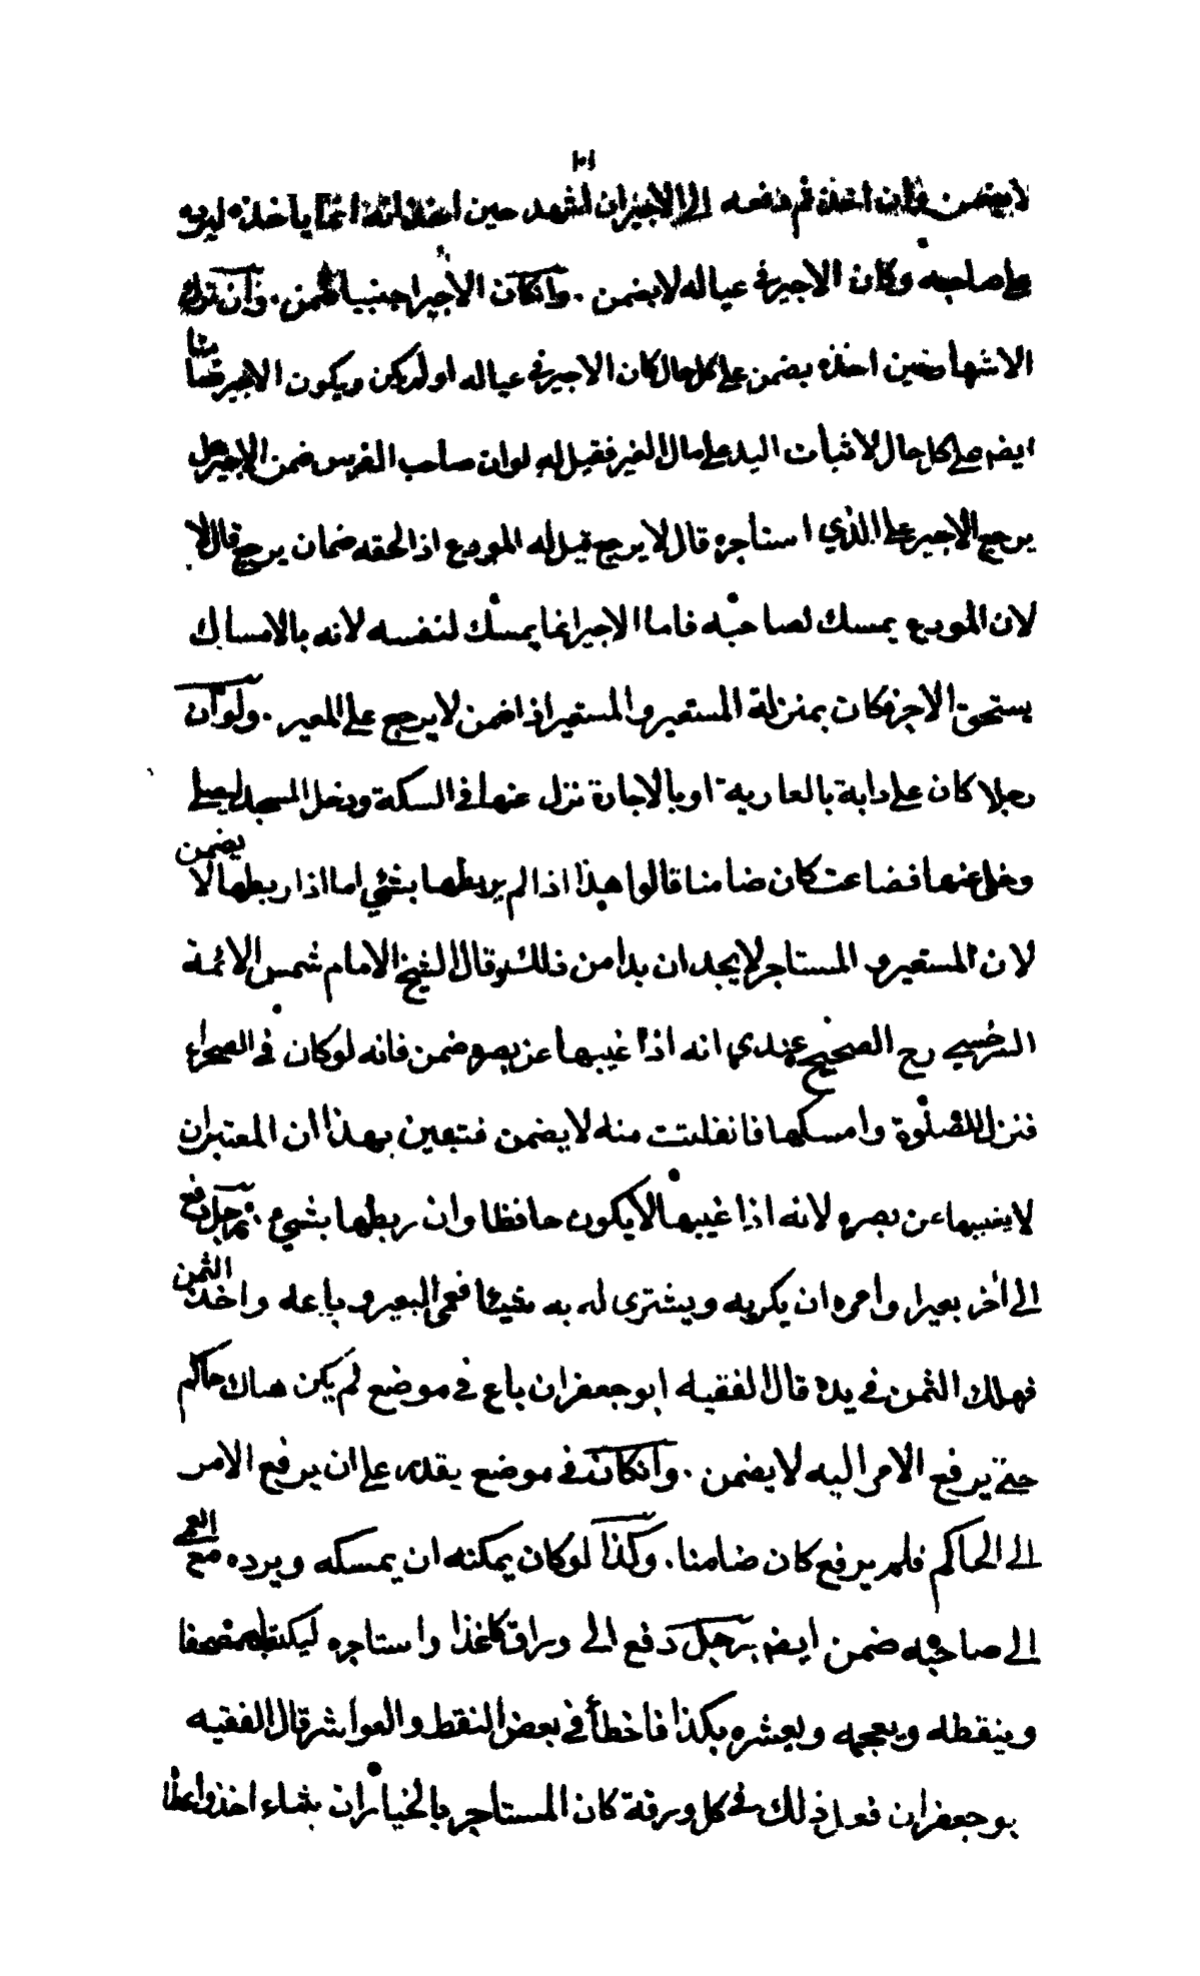 لا يضمن وان اخذه ثم دفعه الى الاجير ان اشهد حين اخذ انه انما ياخذه ليرده
على صاحبه وكان الاجير في عياله لا يضمن . وانكان الاجير اجنبيا ضمن . وان ترك
الاشهاد حين اخذه يضمن على كل حال كان الاجير في عياله او لم يكن ويكون الاجير ضامنا
ايضه على كل حال لاثبات اليد على مال الغير فقيل له لو ان صاحب الفرس ضمن الاجير هل
يرجع الاجير على الذي استاجره قال لا يرجع قيل له المودع اذا لحقه ضمان يرجع قال لا
لان المودع يمسك لصاحبه فاما الاجير انما يمسك لنفسه لانه بالامساك
يستحق الاجر فكان بمنزلة المستعير والمستعير اذا ضمن لا يرجع على المعير . ولو ان
رجلا كان على دابة بالعارية او بالاجارة نزل عنها في السكة ودخل المسجد ليصلي
وخلى عنها فضاعت كان ضامنا قالوا هذا اذا لم يربطها بشئ اما اذا ربطها لا يضمن
لان المستعير والمستاجر لا يجدان بدا من ذلك وقال الشيخ الامام شمس الائمة
السرخسي رح الصحيح عندي انه اذا غيبها عن بصره ضمن فانه لو كان في الصحراء
فنزل للصلوة وامسكها فانفلتت منه لا يضمن فتبين بهذا ان المعتبر ان
لا يغيبها عن بصره لانه اذا غيبها لا يكون حافظا وان ربطها بشئ . رجل دفع
الى اخر بعيرا وامره ان يكريه ويشترى له به شيئا فعمى البعير وباعه واخذ الثمن
فهلك الثمن في يده قال الفقيه ابو جعفر ان باع في موضع لم يكن هناك حاكم
حتى يرفع الامر اليه لا يضمن . وانكان في موضع يقدر على ان يرفع الامر
الى الحاكم فلم يرفع كان ضامنا . وكذا لو كان يمكنه ان يمسكه ويرده مع العمى
الى صاحبه ضمن ايضه رجل دفع الى وراق كاغذا واستاجره ليكتب له مصحفا
وينقطه ويعجمه ويعشره بكذا فاخطأ في بعض النقط والعواشر قال الفقيه
بو جعفر ان فعل ذلك في كل ورقة كان المستاجر بالخيار ان شاء اخذ واعطا